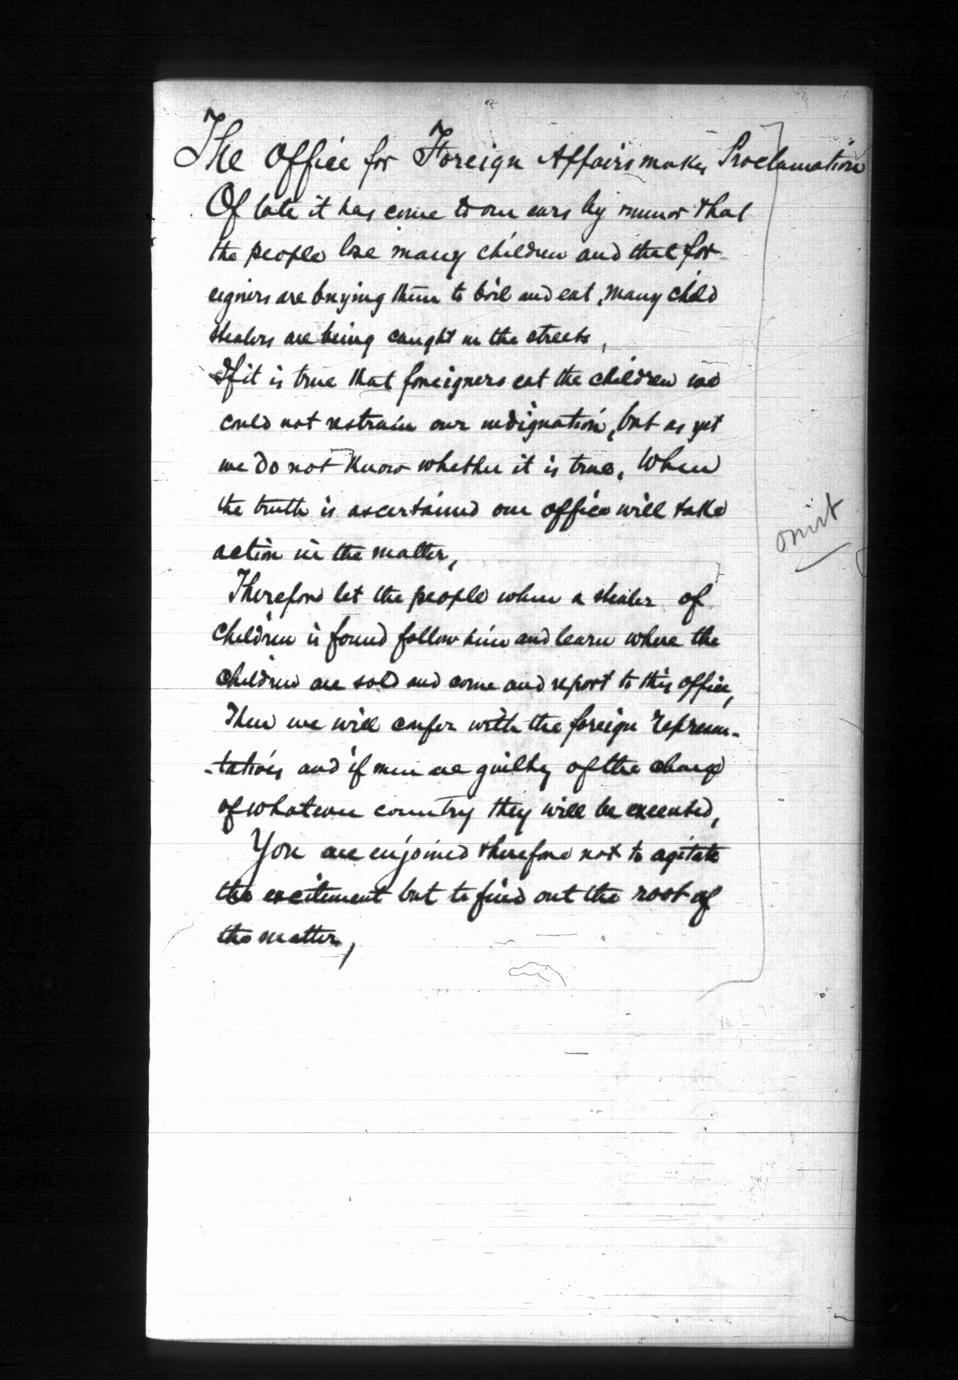 The Office for Foreign Affairs makes Proclamation
Of late it has come to our ears by rumor that
the people lose many children and that for-
eigners are buying them to boil and eat, many child
stealers are being caught in the streets,
If it is true that foreigners eat the children we
could not restrain our indignation, but as yet
we do not know whether it is true. When
the truth is ascertained our office will take
action in the matter,
Therefore let the people when a stealer of
children is found follow him and learn where the
children are sold and come and report to this office,
Then we will confer with the foreign represen-
-tatives and if men are guilty of the charge
of whatever country they will be executed,
You are enjoined therefore not to agitate
the excitement but to find out the root of
the matter,
omit